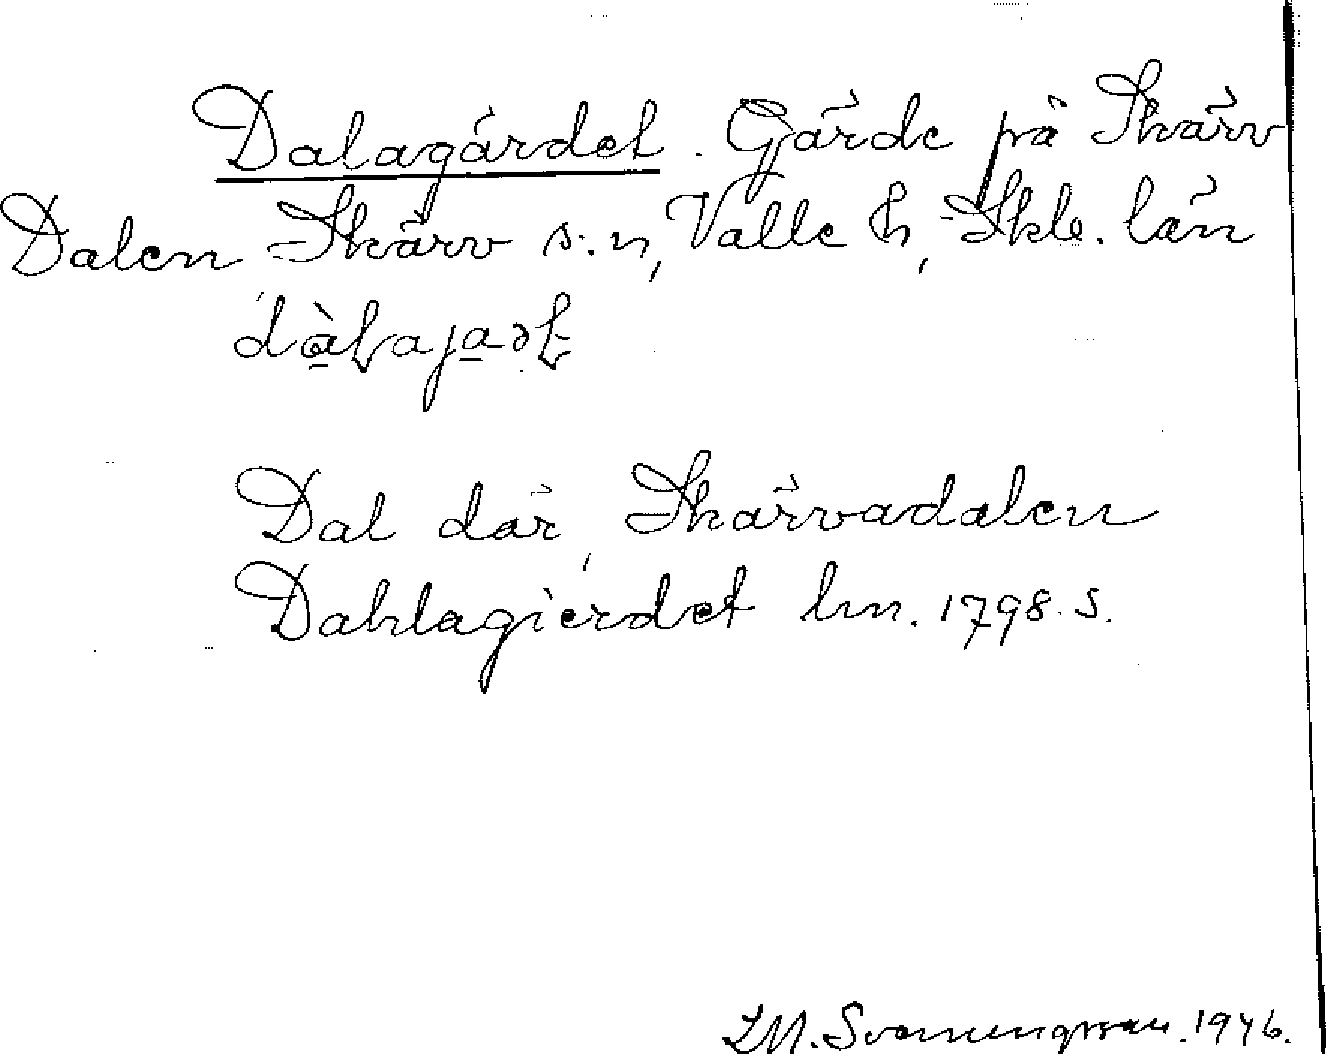 Dalagärdet. Gärde på Skärv
Dalen Skärv s:n, Valle h, Skb. län
dàlajaət
Dal där, Skärvadalen
Dahlagierdet lm. 1798. S.
I.M. Svenungsson. 1946.